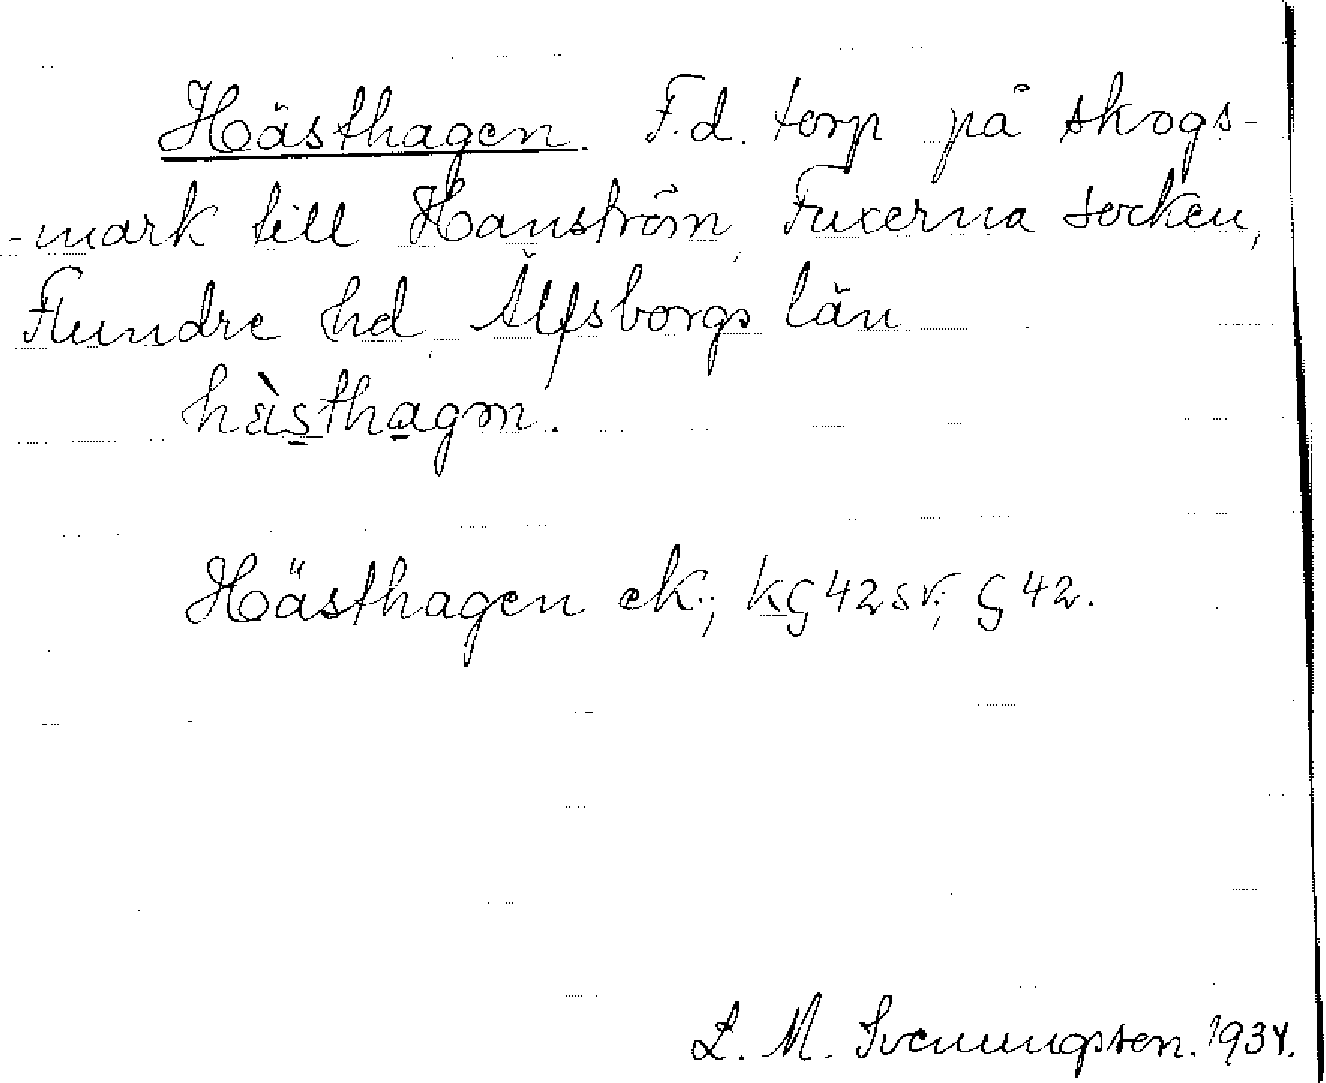 Hästhagen. F.d. torp på skogs-
-mark till Hanström, Fuxerna socken,
Flundre hd, Älfsborgs län
hàsthagen.
Hästhagen ek.; KG 42 sv; G 42.
L. M. Svenungsson. 1934.